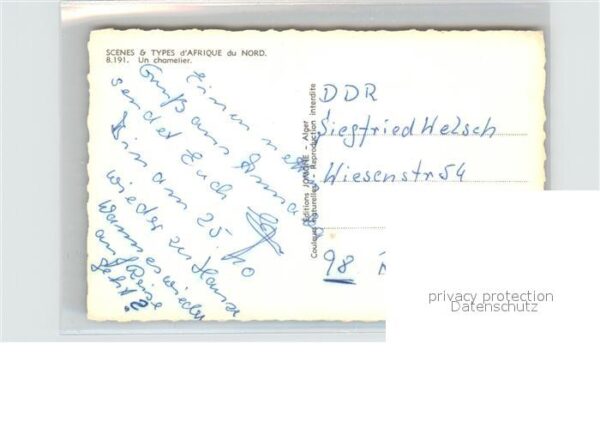 SCENES & TYPES d'AFRIQUE du NORD.
8.191. Un chamelier.
Einen nett
Gruß aus Annaba
sendet Euch
Bin am 25.10
wieder zu Hause
Wann es wieder
auf Reise
geht?
Editions JOMONE - Alger
Couleurs naturelles - Reproduction interdite
DDR
Siegfried Welsch
Wiesenstr 54
98
privacy protection
Datenschutz